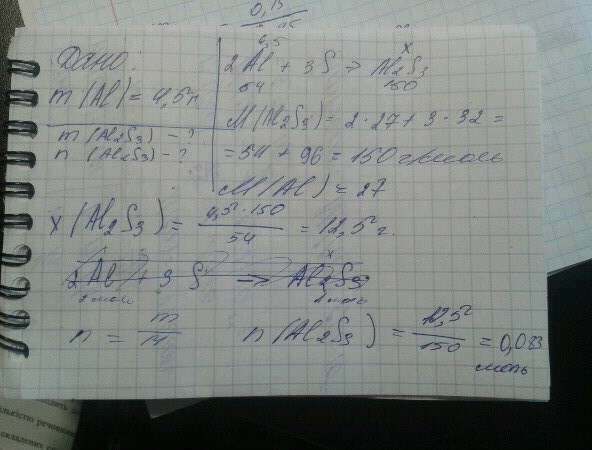 0,15
Дано:
m (Al) = 4,5г
m (Al2S3) - ?
n (Al2S3) - ?
4,5 x
2Al + 3S → Al2S3
54 150
M (Al2S3) = 2·27 + 3·32 =
= 54 + 96 = 150 г/моль
M (Al) = 27
x (Al2S3) = 4,5·150 / 54 = 12,5 г.
x
2Al + 3S → Al2S3
2 моль 1 моль
n = m / M n (Al2S3) = 12,5 / 150 = 0,083
моль
кількістю речовини